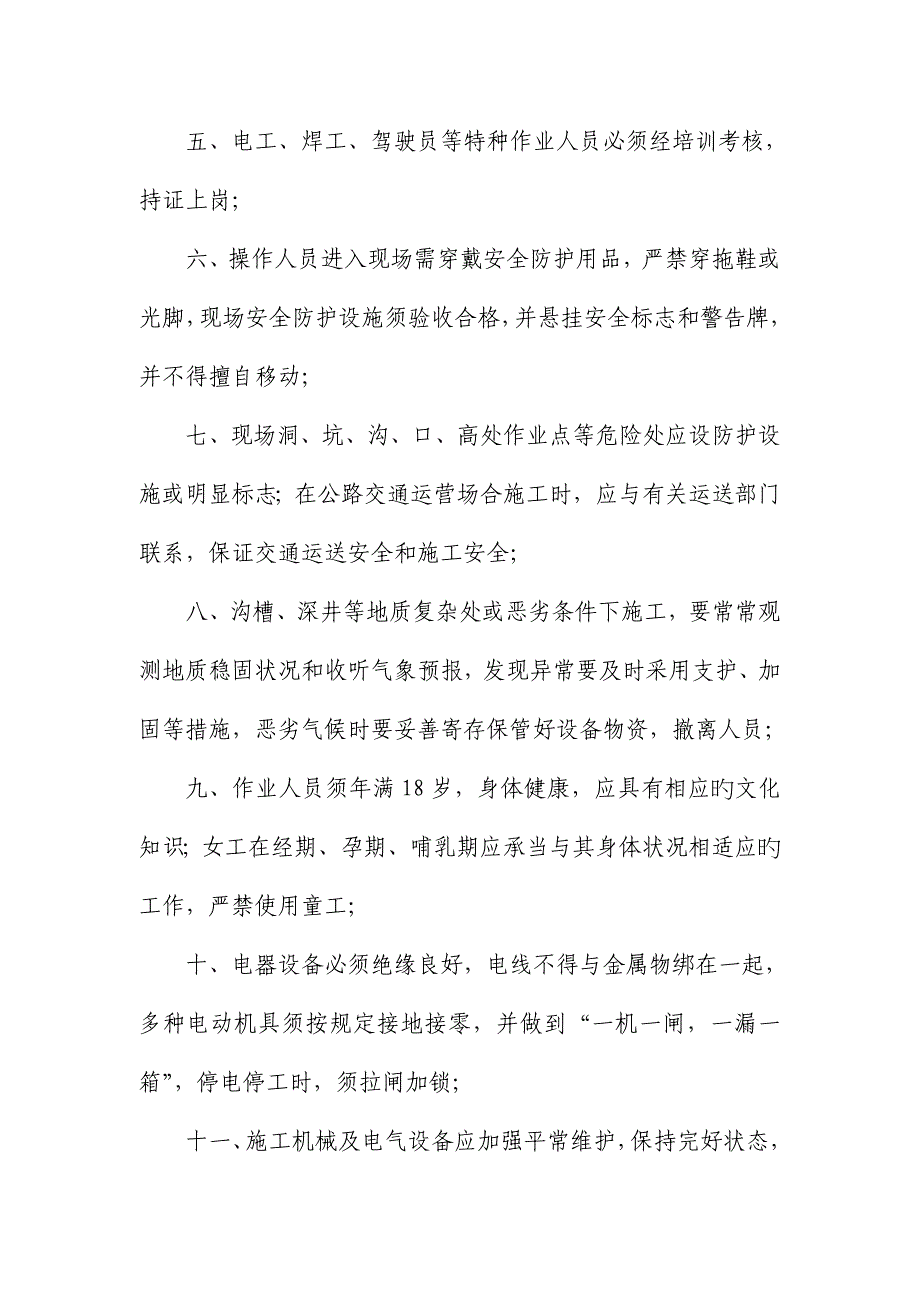 五、电工、焊工、驾驶员等特种作业人员必须经培训考核，
持证上岗；
六、操作人员进入现场需穿戴安全防护用品，严禁穿拖鞋或
光脚，现场安全防护设施须验收合格，并悬挂安全标志和警告牌，
并不得擅自移动；
七、现场洞、坑、沟、口、高处作业点等危险处应设防护设
施或明显标志；在公路交通运营场合施工时，应与有关运送部门
联系，保证交通运送安全和施工安全；
八、沟槽、深井等地质复杂处或恶劣条件下施工，要常常观
测地质稳固状况和收听气象预报，发现异常要及时采用支护、加
固等措施，恶劣气候时要妥善寄存保管好设备物资，撤离人员；
九、作业人员须年满 18 岁，身体健康，应具有相应旳文化
知识；女工在经期、孕期、哺乳期应承当与其身体状况相适应旳
工作，严禁使用童工；
十、电器设备必须绝缘良好，电线不得与金属物绑在一起，
多种电动机具须按规定接地接零，并做到“一机一闸，一漏一
箱”，停电停工时，须拉闸加锁；
十一、施工机械及电气设备应加强平常维护，保持完好状态，